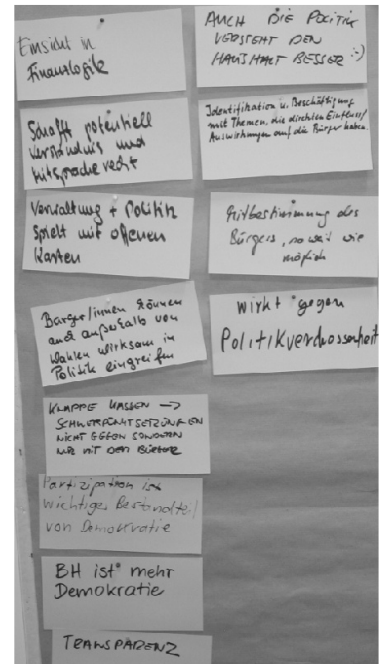 Einsicht in
Finanzlogik
Schafft potentiell
Verständnis und
Mitspracherecht
Verwaltung + Politik
spielt mit offenen
Karten
Bürger/innen können
auch außerhalb von
Wahlen wirksam in
Politik eingreifen
KNAPPE KASSEN →
SCHWERPUNKTSETZUNGEN
NICHT GEGEN SONDERN
NUR MIT DEM BÜRGER
Partizipation ist
wichtiger Bestandteil
von Demokratie
BH ist mehr
Demokratie
TRANSPARENZ
AUCH DIE POLITIK
VERSTEHT DEN
HAUSHALT BESSER :-)
Identifikation u. Beschäftigung
mit Themen, die direkten Einfluss/
Auswirkungen auf die Bürger haben.
Mitbestimmung des
Bürgers, so weit wie
möglich
wirkt gegen
Politikverdrossenheit